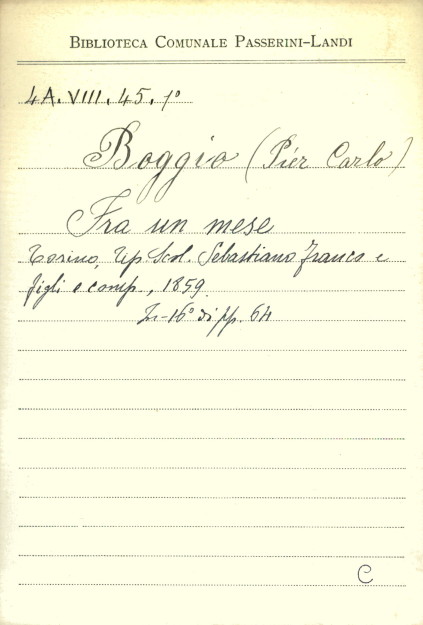 BIBLIOTECA COMUNALE PASSERINI-LANDI
4A.VIII.45.1°
Boggio (Pier Carlo)
Fra un mese
Torino, Tip. Scol. Sebastiano Franco e
figli e comp., 1859.
In-16° di pp. 64
C